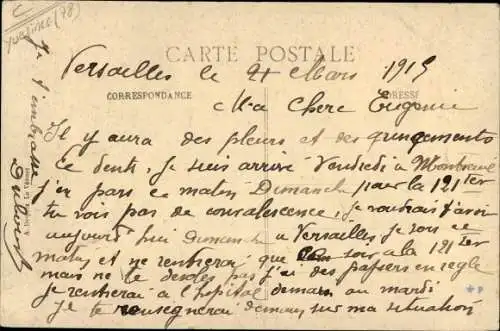 Yvelines (78)
CARTE POSTALE
Versailles le 21 Mars 1915
CORRESPONDANCE
ADRESSE
Ma Chere Eugenie
Il y aura des pleurs et des grincements
ce dents, je suis arrivé Vendredi à Montreuil
j'en pars ce matin Dimanche pour la 121 ter
tu vois pas de convalescence, je voudrais t'avoir
aujourd hui Dimanche à Versailles je sors ce
matin et ne rentrerai que soir a la 121 ter
mais ne te desoles pas j'ai des papiers en regle
je rentrerai à l'hopital demain ou mardi
je te renseignerai demain sur ma situation
Je t'embrasse